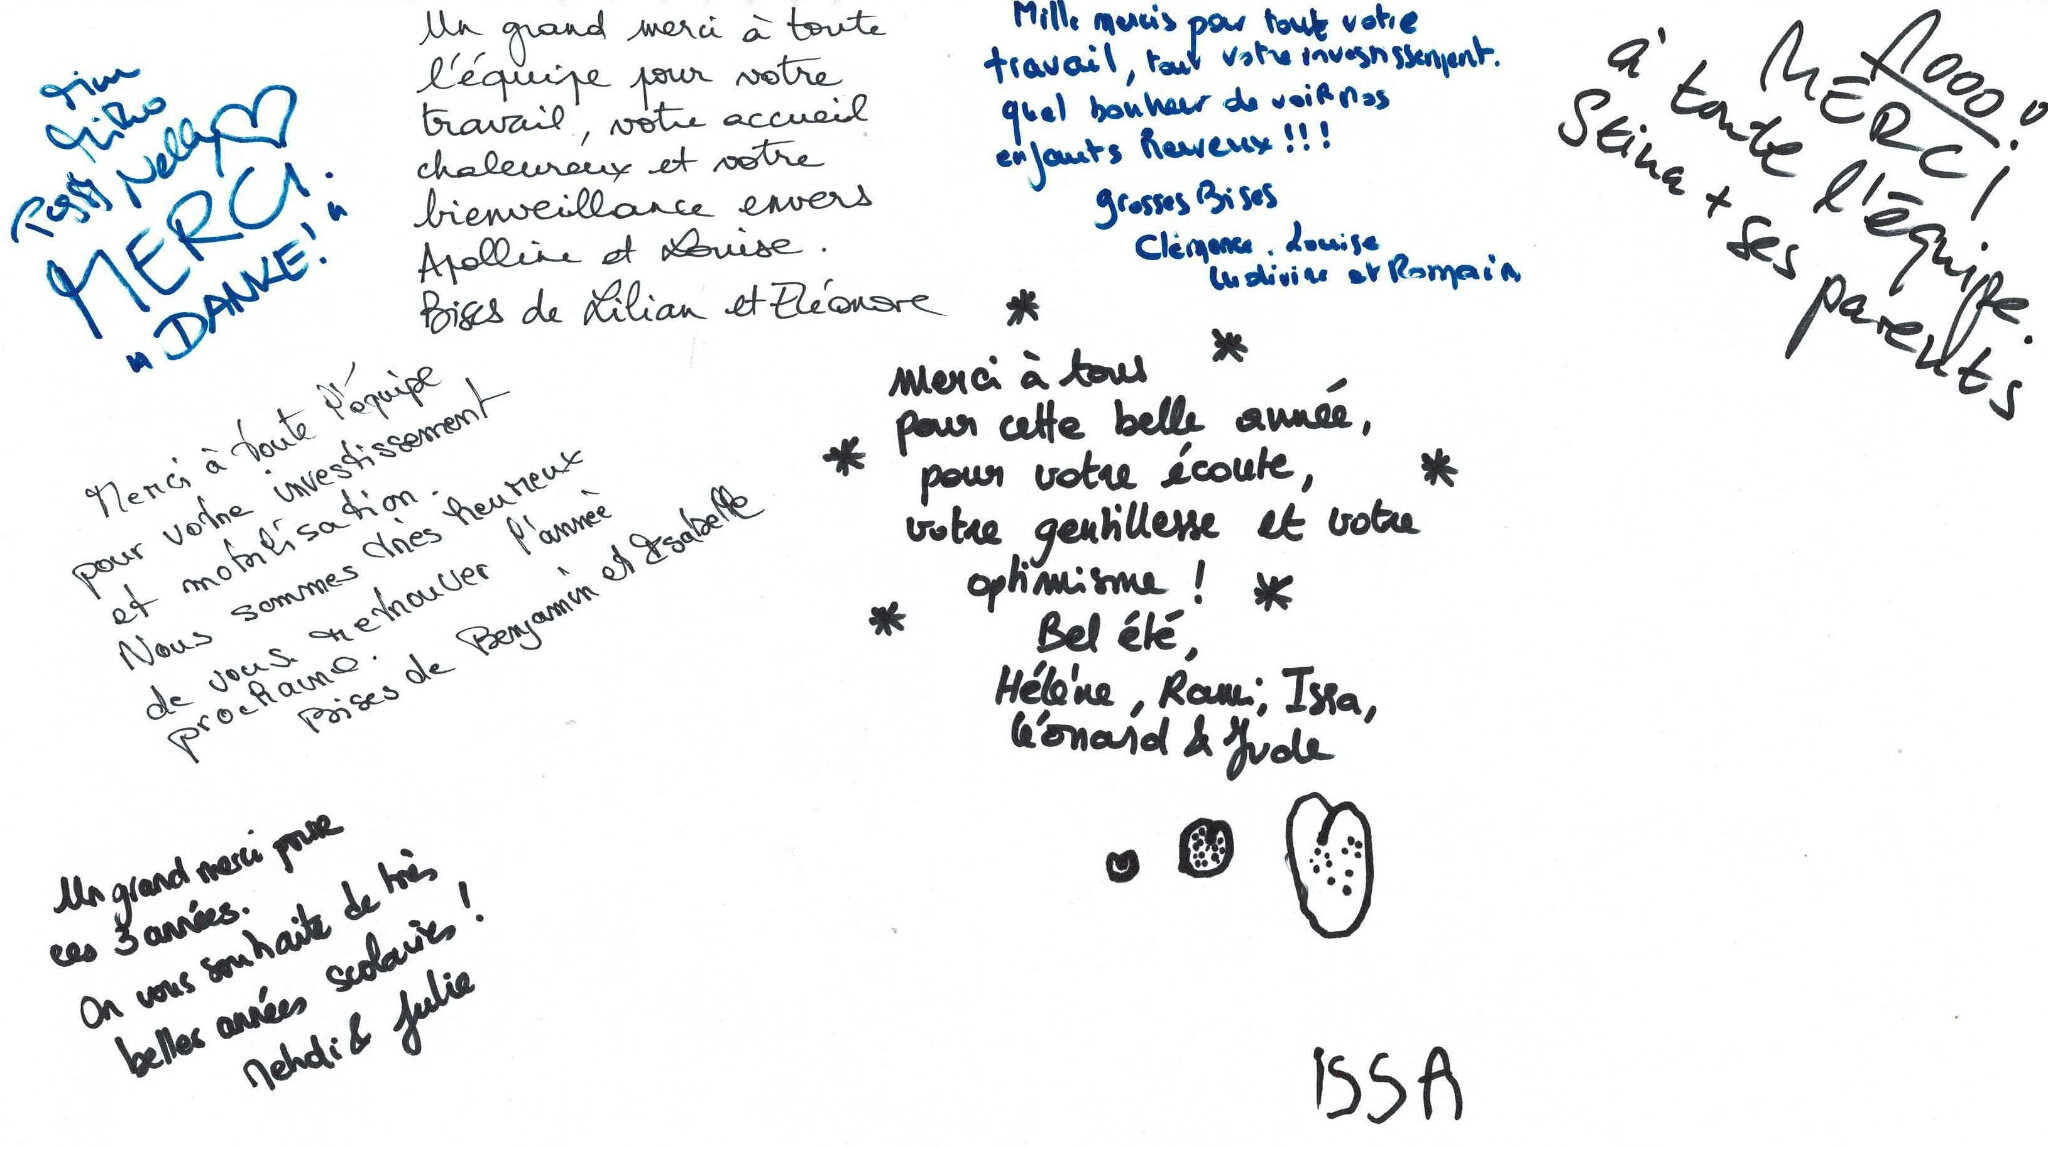 Tim
Miko
Nelly
MERCI.
"DANKE!"
Un grand merci à toute
l'équipe pour votre
travail, votre accueil
chaleureux et votre
bienveillance envers
Apolline et Louise.
Bises de Lilian et Eléonore
Mille mercis pour tout votre
travail, tout votre investissement.
quel bonheur de voir nos
enfants heureux!!!
grosses Bises
Clémence, Louise
Ludivine et Romain
1000
MERCI!
à toute l'équipe.
Stina + ses parents
Merci à toute l'équipe
pour votre investissement
et mobilisation.
Nous sommes très heureux
de vous retrouver l'année
prochaine.
Bises de Benjamin et Isabelle
merci à tous
pour cette belle année,
pour votre écoute,
votre gentillesse et votre
optimisme !
Bel été,
Hélène, Rami, Issa,
Léonard & Jude
Un grand merci pour
ces 3 années.
On vous souhaite de très
belles années scolaires !
Mehdi & Julie
ISSA